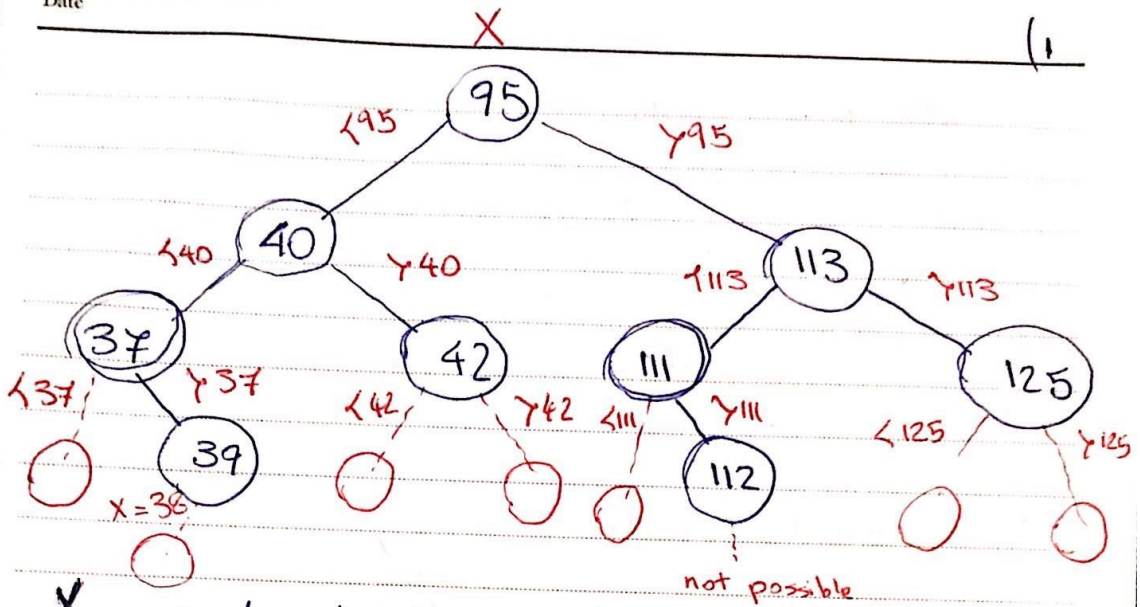 Date
X
(1
95
<95 >95
40
113
<40 >40
<113 >113
37
42
111
125
<37 >37
<42 >42
<111 >111
<125 >125
39
112
x=38
not possible